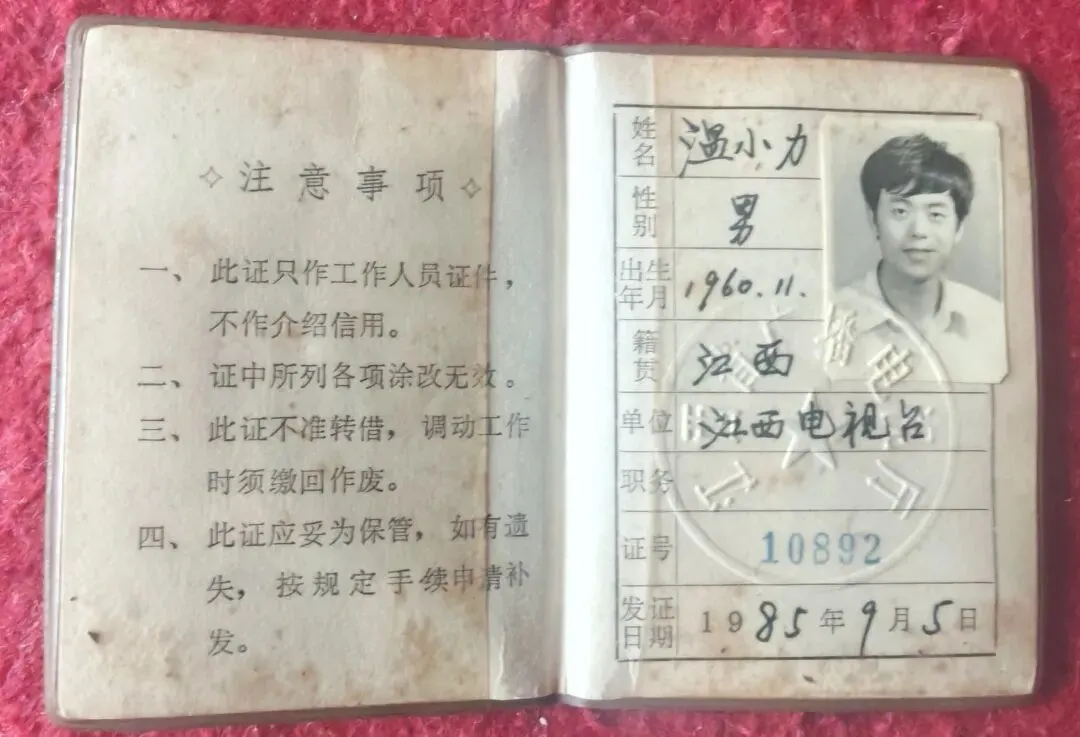 注意事项
一、此证只作工作人员证件，
不作介绍信用。
二、证中所列各项涂改无效。
三、此证不准转借，调动工作
时须缴回作废。
四、此证应妥为保管，如有遗
失，按规定手续申请补
发。
姓名 温小力
性别 男
出生年月 1960.11.
籍贯 江西
单位 江西电视台
职务
证号 10892
发证日期 1985年9月5日